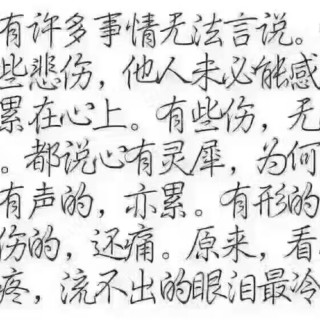 有许多事情无法言说。
些悲伤，他人未必能感
累在心上。有些伤，无
。都说心有灵犀，为何
有声的，亦累。有形的
伤的，还痛。原来，看
疼，流不出的眼泪最冷